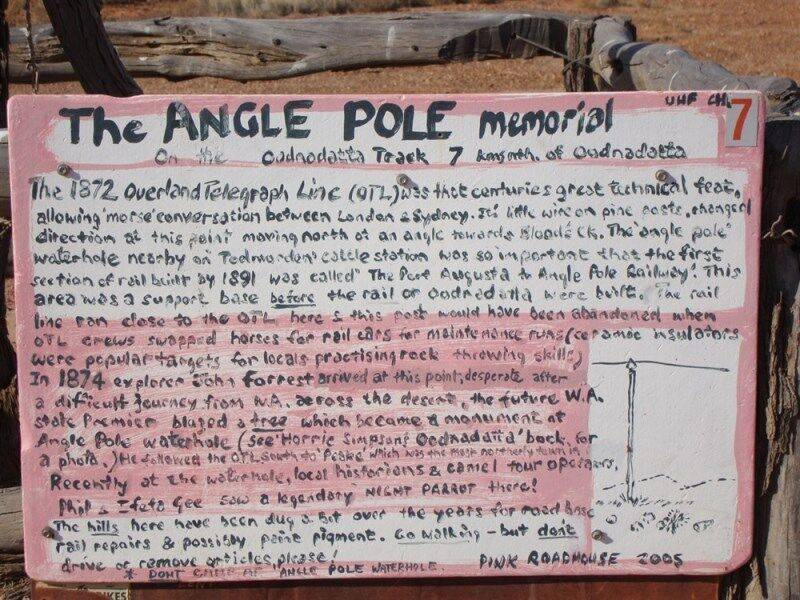 UHF CH. 7
The ANGLE POLE memorial
On the Oodnadatta Track 7 kms nth. of Oodnadatta
The 1872 Overland Telegraph Line (OTL) was that centuries great technical feat,
allowing 'morse' conversation between London & Sydney. Its' little wire on pine posts, changed
direction at this point moving north at an angle towards Bloods Ck. The 'angle pole'
waterhole nearby on Todmorden cattle station was so important that the first
section of rail built by 1891 was called "The Port Augusta to Angle Pole Railway". This
area was a support base before the rail or Oodnadatta were built. The rail
line ran close to the OTL here & this post would have been abandoned when
OTL crews swapped horses for rail cars for maintenance runs (ceramic insulators
were popular targets for locals practising rock throwing skills)
In 1874 explorer John Forrest arrived at this point, desperate after
a difficult journey from W.A. across the desert, the future W.A.
state Premier blazed a tree which became a monument at
Angle Pole waterhole (see 'Horrie Simpsons' Oodnadatta' book, for
a photo.) He followed the OTL south to 'Peake' which was the most northerly town in
Recently at the waterhole, local historians & camel tour operators,
Phil & Ifeta Gee saw a legendary NIGHT PARROT there!
The hills here have been dug a bit over the years for road base
rail repairs & possibly paint pigment. Go walking - but dont
drive or remove articles, please! PINK ROADHOUSE 2005
* DONT CAMP AT ANGLE POLE WATERHOLE.